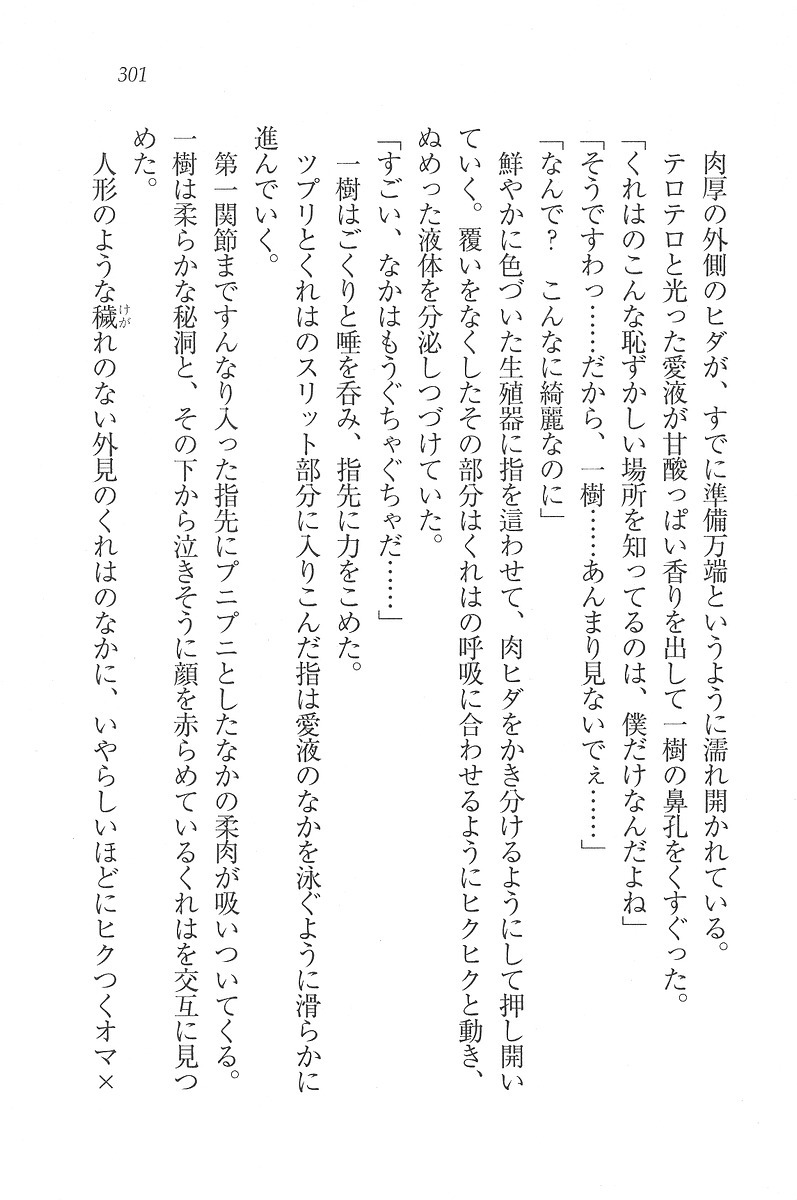 301
肉厚の外側のヒダが、すでに準備万端というように濡れ開かれている。
テロテロと光った愛液が甘酸っぱい香りを出して一樹の鼻孔をくすぐった。
「くれはのこんな恥ずかしい場所を知ってるのは、僕だけなんだよね」
「そうですわっ……だから、一樹……あんまり見ないでぇ……」
「なんで？　こんなに綺麗なのに」
鮮やかに色づいた生殖器に指を這わせて、肉ヒダをかき分けるようにして押し開い
ていく。覆いをなくしたその部分はくれはの呼吸に合わせるようにヒクヒクと動き、
ぬめった液体を分泌しつづけていた。
「すごい、なかはもうぐちゃぐちゃだ……」
一樹はごくりと唾を呑み、指先に力をこめた。
ツプリとくれはのスリット部分に入りこんだ指は愛液のなかを泳ぐように滑らかに
進んでいく。
第一関節まですんなり入った指先にプニプニとしたなかの柔肉が吸いついてくる。
一樹は柔らかな秘洞と、その下から泣きそうに顔を赤らめているくれはを交互に見つ
めた。
人形のような穢けがれのない外見のくれはのなかに、いやらしいほどにヒクつくオマ×